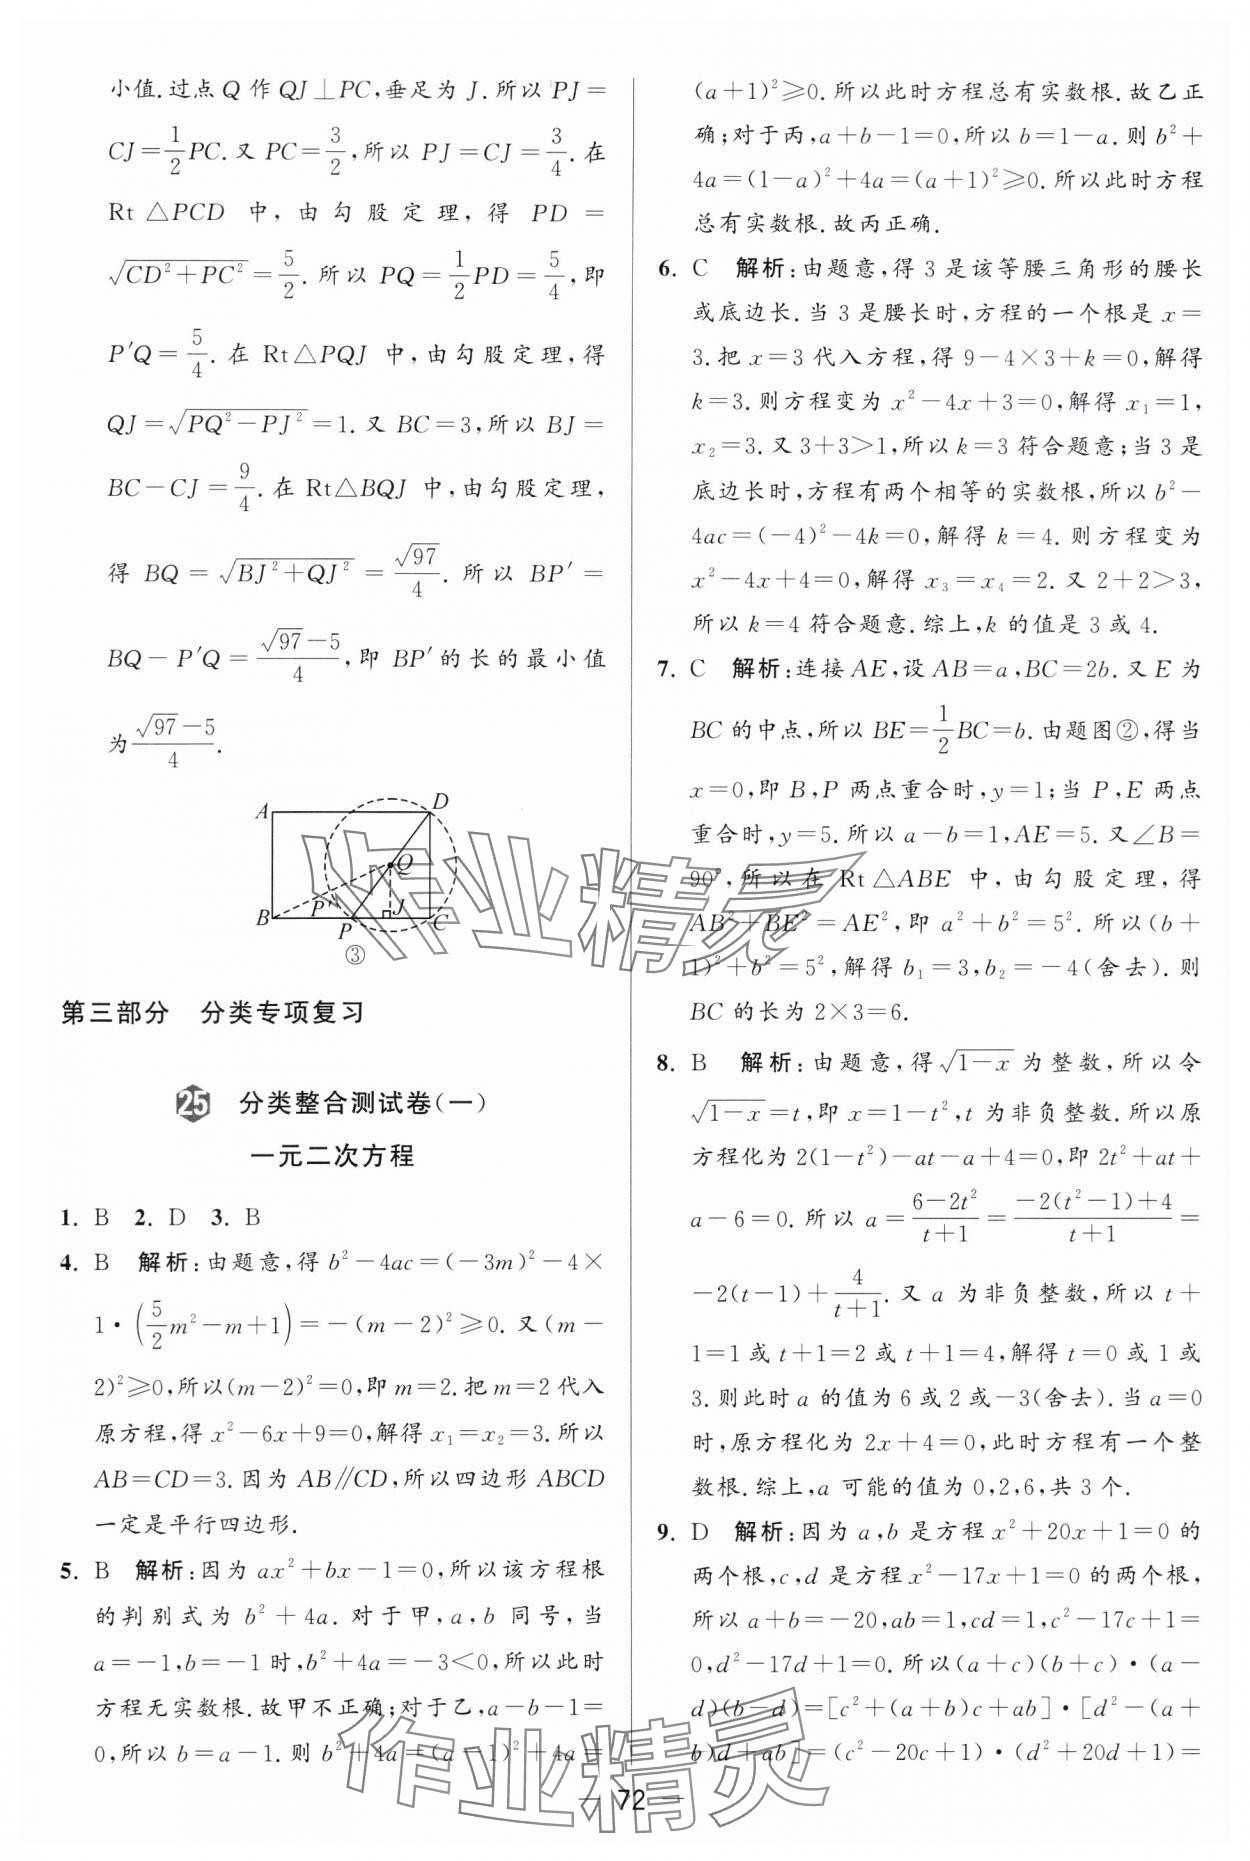 小值.过点 Q 作 QJ⊥PC,垂足为 J.所以 PJ=
CJ=1/2PC.又 PC=3/2,所以 PJ=CJ=3/4.在
Rt△PCD 中,由勾股定理,得 PD=
√(CD²+PC²)=5/2.所以 PQ=1/2PD=5/4,即
P′Q=5/4.在 Rt△PQJ 中,由勾股定理,得
QJ=√(PQ²-PJ²)=1.又 BC=3,所以 BJ=
BC-CJ=9/4.在 Rt△BQJ 中,由勾股定理,
得 BQ=√(BJ²+QJ²)=√97/4.所以 BP′=
BQ-P′Q=(√97-5)/4,即 BP′的长的最小值
为(√97-5)/4.
A D
Q
B P′ J C
P
③
第三部分 分类专项复习
25 分类整合测试卷(一)
一元二次方程
1. B 2. D 3. B
4. B 解析:由题意,得 b²-4ac=(-3m)²-4×
1·(5/2m²-m+1)=-(m-2)²≥0.又(m-
2)²≥0,所以(m-2)²=0,即 m=2.把 m=2 代入
原方程,得 x²-6x+9=0,解得 x₁=x₂=3.所以
AB=CD=3.因为 AB∥CD,所以四边形 ABCD
一定是平行四边形.
5. B 解析:因为 ax²+bx-1=0,所以该方程根
的判别式为 b²+4a.对于甲,a,b 同号,当
a=-1,b=-1 时,b²+4a=-3<0,所以此时
方程无实数根.故甲不正确;对于乙,a-b-1=
0,所以 b=a-1.则 b²+4a=(a-1)²+4a=
(a+1)²≥0.所以此时方程总有实数根.故乙正
确;对于丙,a+b-1=0,所以 b=1-a.则 b²+
4a=(1-a)²+4a=(a+1)²≥0.所以此时方程
总有实数根.故丙正确.
6. C 解析:由题意,得 3 是该等腰三角形的腰长
或底边长.当 3 是腰长时,方程的一个根是 x=
3.把 x=3 代入方程,得 9-4×3+k=0,解得
k=3.则方程变为 x²-4x+3=0,解得 x₁=1,
x₂=3.又 3+3>1,所以 k=3 符合题意;当 3 是
底边长时,方程有两个相等的实数根,所以 b²-
4ac=(-4)²-4k=0,解得 k=4.则方程变为
x²-4x+4=0,解得 x₃=x₄=2.又 2+2>3,
所以 k=4 符合题意.综上,k 的值是 3 或 4.
7. C 解析:连接 AE,设 AB=a,BC=2b.又 E 为
BC 的中点,所以 BE=1/2BC=b.由题图②,得当
x=0,即 B,P 两点重合时,y=1;当 P,E 两点
重合时,y=5.所以 a-b=1,AE=5.又∠B=
90°,所以在 Rt△ABE 中,由勾股定理,得
AB²+BE²=AE²,即 a²+b²=5².所以(b+
1)²+b²=5²,解得 b₁=3,b₂=-4(舍去).则
BC 的长为 2×3=6.
8. B 解析:由题意,得√(1-x)为整数,所以令
√(1-x)=t,即 x=1-t²,t 为非负整数.所以原
方程化为 2(1-t²)-at-a+4=0,即 2t²+at+
a-6=0.所以 a=(6-2t²)/(t+1)=(-2(t²-1)+4)/(t+1)=
-2(t-1)+4/(t+1).又 a 为非负整数,所以 t+
1=1 或 t+1=2 或 t+1=4,解得 t=0 或 1 或
3.则此时 a 的值为 6 或 2 或-3(舍去).当 a=0
时,原方程化为 2x+4=0,此时方程有一个整
数根.综上,a 可能的值为 0,2,6,共 3 个.
9. D 解析:因为 a,b 是方程 x²+20x+1=0 的
两个根,c,d 是方程 x²-17x+1=0 的两个根,
所以 a+b=-20,ab=1,cd=1,c²-17c+1=
0,d²-17d+1=0.所以(a+c)(b+c)·(a-
d)(b-d)=[c²+(a+b)c+ab]·[d²-(a+
b)d+ab]=(c²-20c+1)·(d²+20d+1)=
72
作业精灵
作业精灵